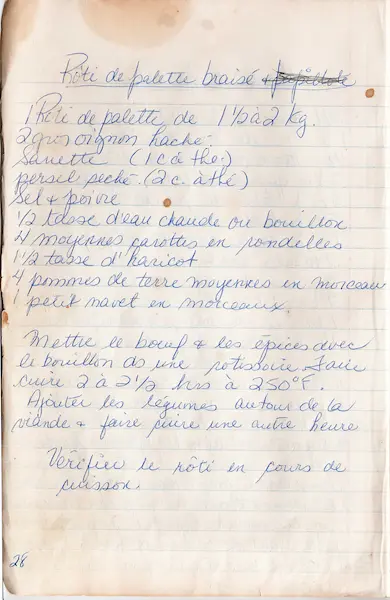 Rôti de palette braisé +
1 Rôti de palette de 1 1/2 à 2 Kg.
2 gros oignon haché.
Sariette (1 c à thé)
persel séché. (2 c. à thé)
Sel + poivre
1/2 tasse d'eau chaude ou bouillon
4 moyennes carottes en rondelles
1 1/2 tasse d'haricot
4 pommes de terre moyennes en morceau
1 petit navet en morceaux.
Mettre le bœuf & les épices avec
le bouillon ds une rotissoire. Faire
cuire 2 à 2 1/2 hrs à 250°F.
Ajouter les légumes autour de la
viande + faire cuire une autre heure
Vérifier le rôti en cours de
cuisson.
28